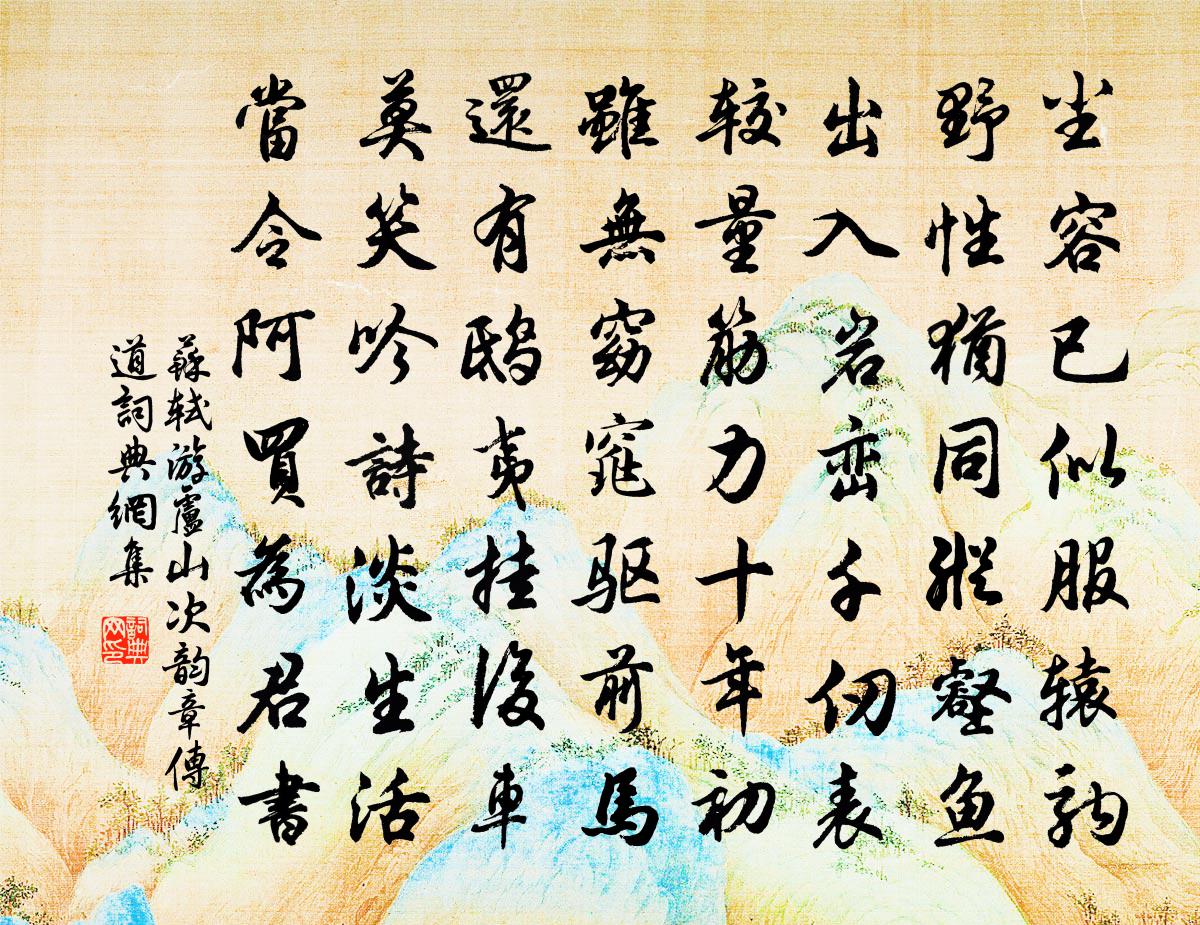 尘容已似服辕驹
野性猶同縱壑鱼
出入岩峦千仞表
较量筋力十年初
雖無窈窕驱前馬
還有鸱夷挂後車
莫笑吟詩淡生活
當令阿買為君書
蘇軾游廬山次韵章傳
道詞典網集
詞典网印